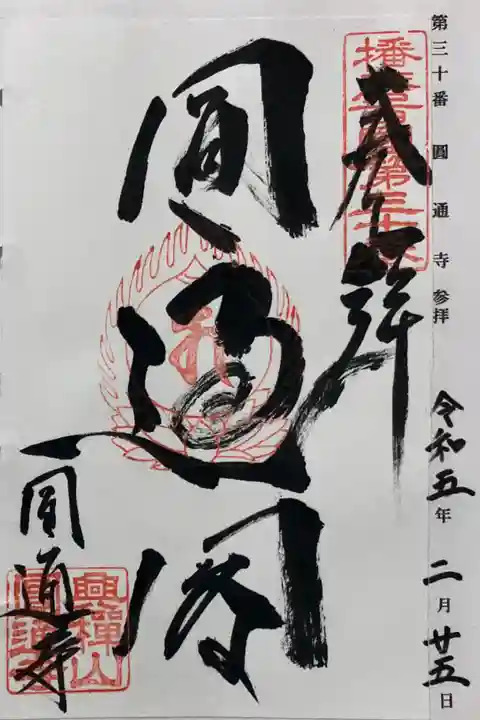 第三十番 圓通寺 参拝
令和五年 二月廿五日
奉拝
圓通閣
圓通寺
興禪山
圓通寺